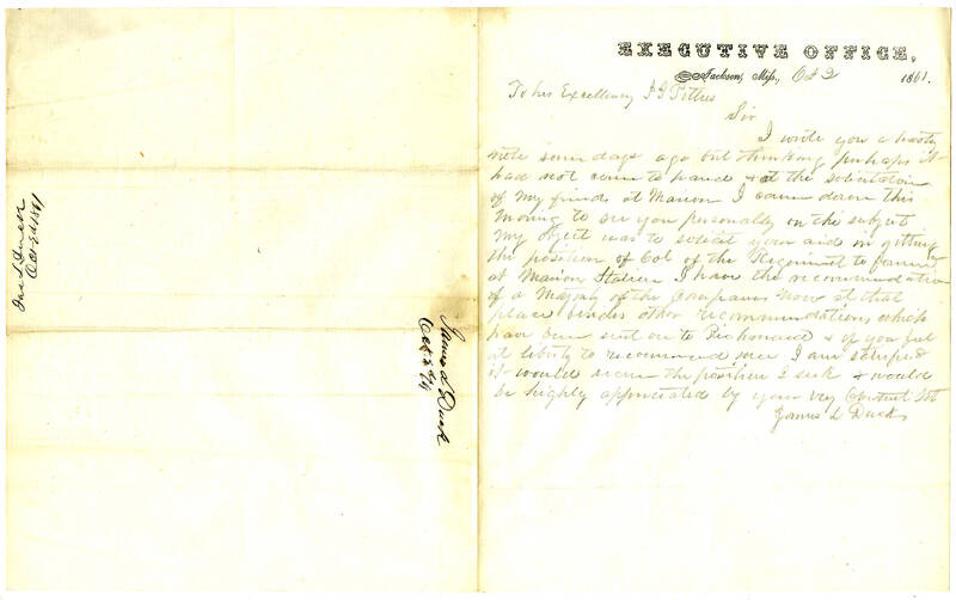 EXECUTIVE OFFICE,
Jackson, Miss., Oct 2 1861.
To his Excellency J J Pettus
Sir
I wrote you a hasty
note some days ago but thinking perhaps it
had not come to hand & at the solicitation
of my friends at Marion I came down this
morning to see you personally on the subject
My object was to solicit your aid in getting
the position of Col of the Regiment to be
at Marion Station I have the recommendation
of a Majority of the Companies now at that
place besides other recommendations which
have been sent on to Richmond & if you feel
at liberty to recommend me I am satisfied
it would secure the position I seek & would
be highly appreciated by your very Obedient
James L Duck
James L Duck
Oct 2nd
Oct 2nd 1861